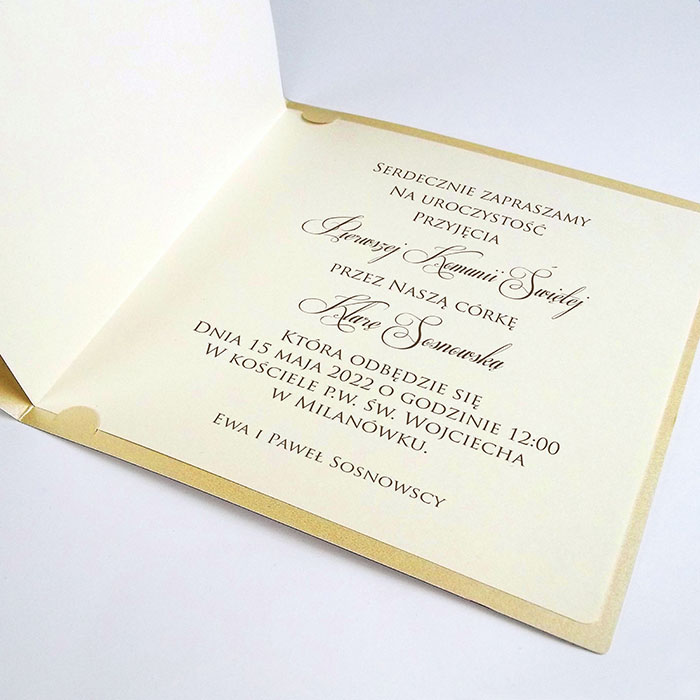 Serdecznie zapraszamy
Na uroczystość
przyjęcia
Pierwszej Komunii Świętej
przez Naszą córkę
Klarę Sosnowską
Która odbędzie się
Dnia 15 maja 2022 o godzinie 12:00
w kościele p.w. św. Wojciecha
w Milanówku.
Ewa i Paweł Sosnowscy